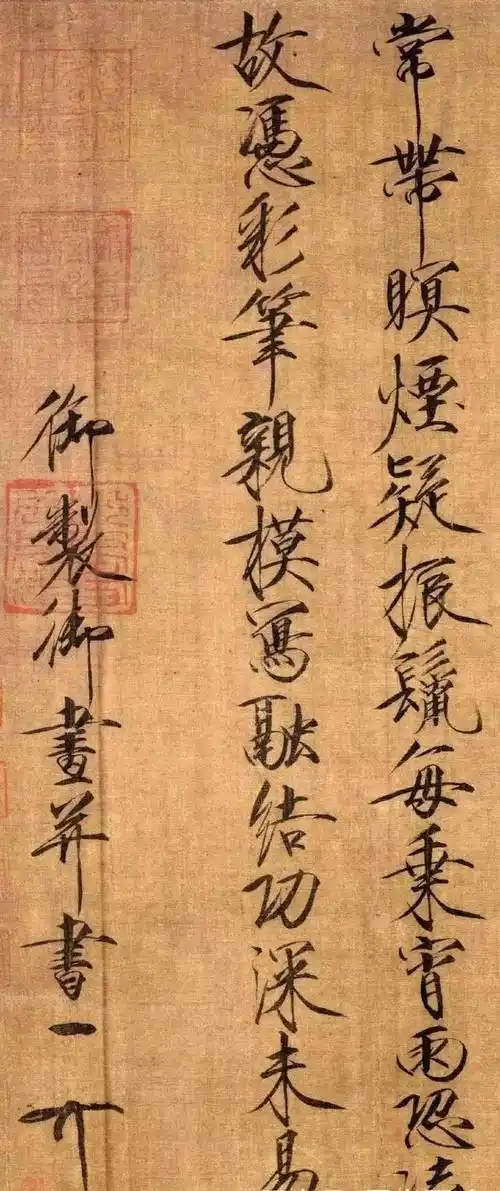 常帶暝煙疑振鬣每乘宵雨恐
故憑彩筆親模寫融結功深未易
御製御畫并書